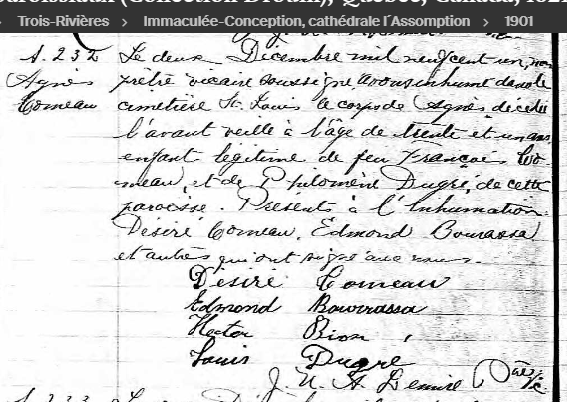 Trois-Rivières > Immaculée-Conception, cathédrale l'Assomption > 1901
S. 232 Le deux Décembre mil neuf cent un, nous
Agnès prêtre vicaire soussigné avons inhumé dans le
Comeau cimetière St. Louis le corps de Agnès décédée
l'avant veille à l'âge de trente et un ans
enfant légitime de feu François Co-
meau, et de Philomène Dugré, de cette
paroisse. Présents à l'inhumation
Désiré Comeau, Edmond Bourassa
et autres qui ont signé avec nous.
Désiré Comeau
Edmond Bourrassa
Hector
Louis Dugre
J. U. A.
S. 233